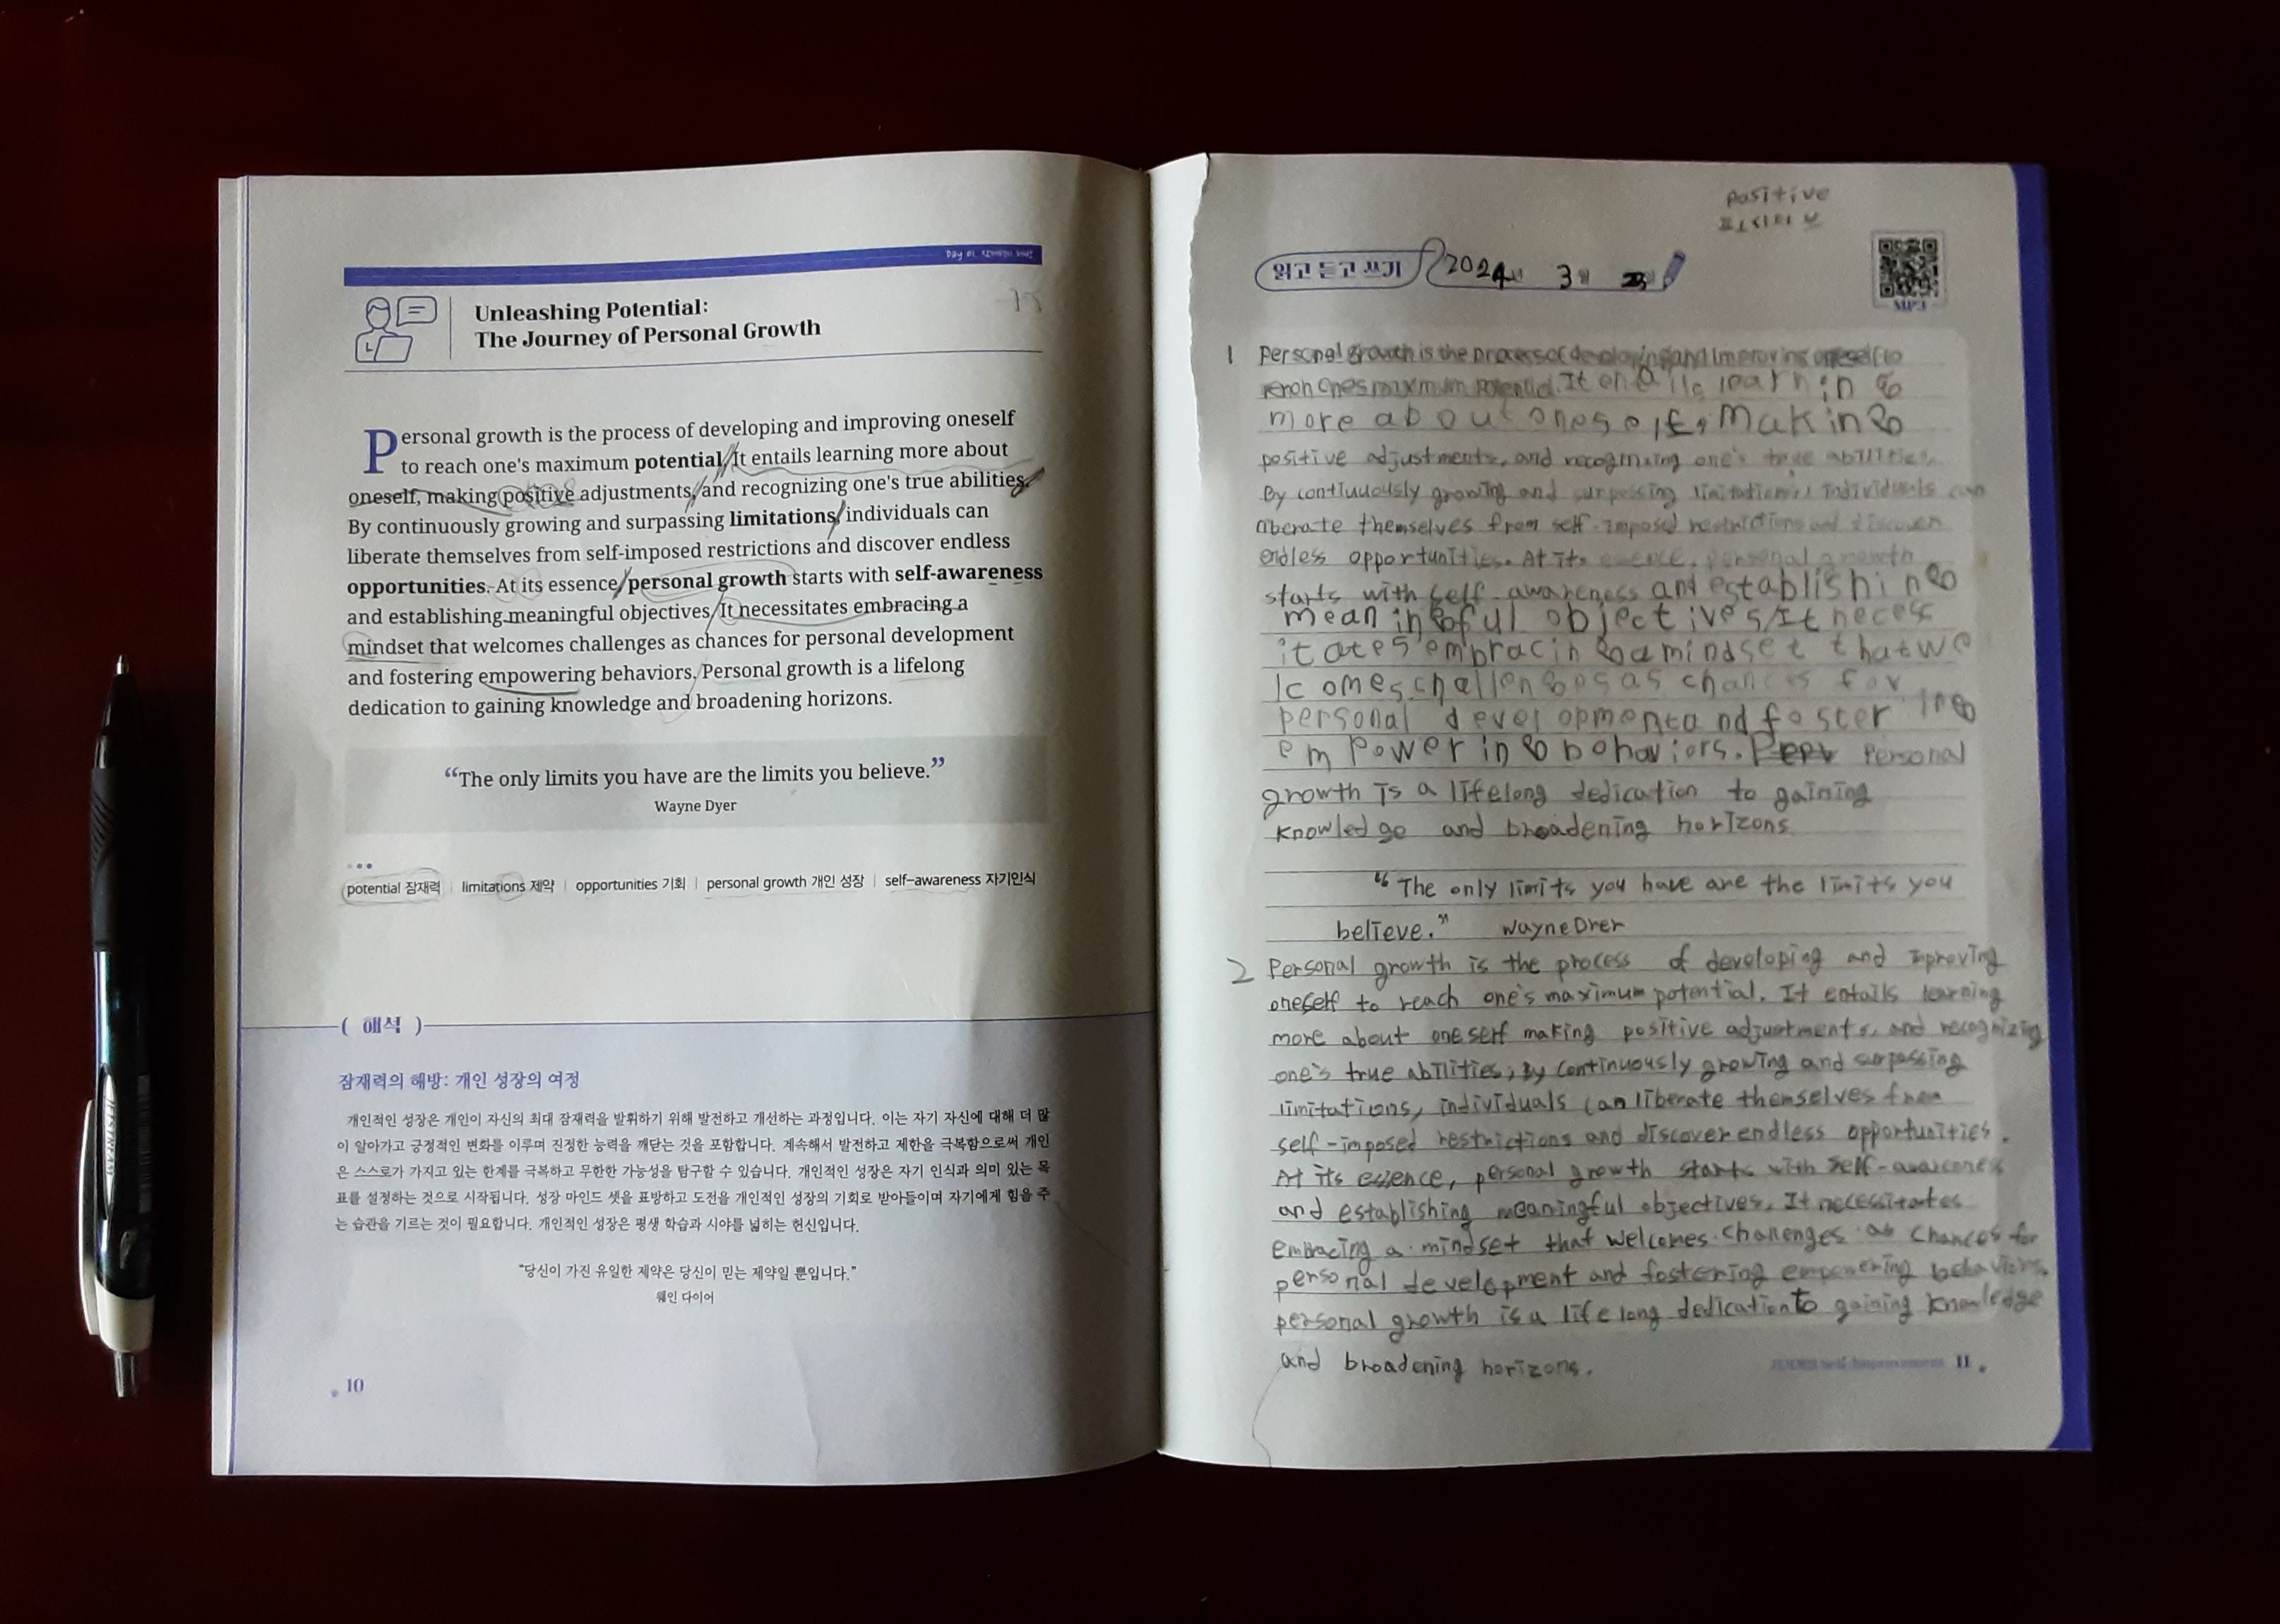 Day 01
Unleashing Potential:
The Journey of Personal Growth
Personal growth is the process of developing and improving oneself
to reach one's maximum potential. It entails learning more about
oneself, making positive adjustments, and recognizing one's true abilities.
By continuously growing and surpassing limitations, individuals can
liberate themselves from self-imposed restrictions and discover endless
opportunities. At its essence, personal growth starts with self-awareness
and establishing meaningful objectives. It necessitates embracing a
mindset that welcomes challenges as chances for personal development
and fostering empowering behaviors. Personal growth is a lifelong
dedication to gaining knowledge and broadening horizons.
“The only limits you have are the limits you believe.”
Wayne Dyer
potential 잠재력 | limitations 제약 | opportunities 기회 | personal growth 개인 성장 | self-awareness 자기인식
( 해석 )
잠재력의 해방: 개인 성장의 여정
개인적인 성장은 개인이 자신의 최대 잠재력을 발휘하기 위해 발전하고 개선하는 과정입니다. 이는 자기 자신에 대해 더 많
이 알아가고 긍정적인 변화를 이루며 진정한 능력을 깨닫는 것을 포함합니다. 계속해서 발전하고 제한을 극복함으로써 개인
은 스스로가 가지고 있는 한계를 극복하고 무한한 가능성을 탐구할 수 있습니다. 개인적인 성장은 자기 인식과 의미 있는 목
표를 설정하는 것으로 시작됩니다. 성장 마인드 셋을 표방하고 도전을 개인적인 성장의 기회로 받아들이며 자기에게 힘을 주
는 습관을 기르는 것이 필요합니다. 개인적인 성장은 평생 학습과 시야를 넓히는 헌신입니다.
“당신이 가진 유일한 제약은 당신이 믿는 제약일 뿐입니다.”
웨인 다이어
10
positive
읽고 듣고 쓰기 2024년 3월
MP3
1 personal growth is the process of developing and improving oneself to
ones maximum potential. It learning
more about oneself, making
positive adjustments, and recognizing one's true abilities.
By continuously growing and surpassing limitations, individuals can
liberate themselves from self-imposed restrictions and discover
endless opportunities. At its essence, personal growth
starts with self-awareness and establishing
meaningful objectives/It necess
itates embracing a mindset that we
lcomes challenges as chances for
personal development and fostering
empowering behaviors. Personal
growth is a lifelong dedication to gaining
knowledge and broadening horizons
“The only limits you have are the limits you
believe.” Wayne Drer
2 Personal growth is the process of developing and improving
oneself to reach one's maximum potential. It entails learning
more about oneself making positive adjustments, and recognizing
one's true abilities, By continuously growing and surpassing
limitations, individuals can liberate themselves from
self-imposed restrictions and discover endless opportunities.
At its essence, personal growth starts with self-awareness
and establishing meaningful objectives. It necessitates
embracing a mindset that welcomes challenges as chances for
personal development and fostering empowering behaviors.
personal growth is a lifelong dedication to gaining knowledge
and broadening horizons.
11
JETSTREAM